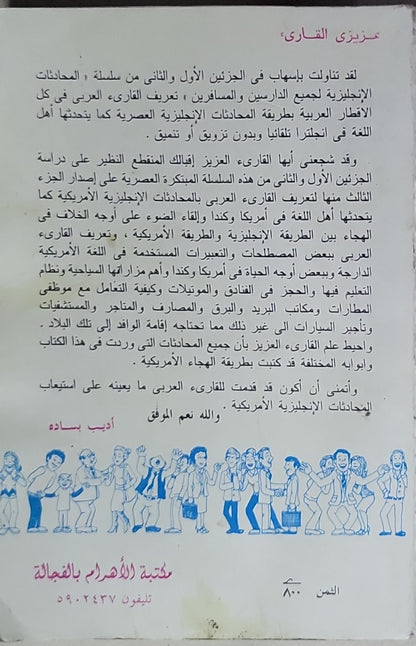 عزيزى القارىء
لقد تناولت بإسهاب فى الجزئين الأول والثانى من سلسلة « المحادثات
الإنجليزية لجميع الدارسين والمسافرين » تعريف القارىء العربى فى كل
الأقطار العربية بطريقة المحادثات الإنجليزية العصرية كما يتحدثها أهل
اللغة فى انجلترا تلقائيا وبدون تزويق أو تنميق .
وقد شجعنى أيها القارىء العزيز إقبالك المنقطع النظير على دراسة
الجزئين الأول والثانى من هذه السلسلة المبتكرة العصرية على إصدار الجزء
الثالث منها لتعريف القارىء العربى بالمحادثات الإنجليزية الأمريكية كما
يتحدثها أهل اللغة فى أمريكا وكندا وإلقاء الضوء على أوجه الخلاف فى
الهجاء بين الطريقة الإنجليزية والطريقة الأمريكية ، وتعريف القارىء
العربى ببعض المصطلحات والتعبيرات المستخدمة فى اللغة الأمريكية
الدارجة وببعض أوجه الحياة فى أمريكا وكندا وأهم مزاراتها السياحية ونظام
التعليم فيها والحجز فى الفنادق والموتيلات وكيفية التعامل مع موظفى
المطارات ومكاتب البريد والبرق والمصارف والمتاجر والمستشفيات
وتأجير السيارات الى غير ذلك مما تحتاجه إقامة الوافد إلى تلك البلاد .
واحيط علم القارىء العزيز بأن جميع المحادثات التى وردت فى هذا الكتاب
وابوابه المختلفة قد كتبت بطريقة الهجاء الأمريكية .
وأتمنى أن أكون قد قدمت للقارىء العربى ما يعينه على استيعاب
المحادثات الإنجليزية الأمريكية .
والله نعم الموفق
أديب بساده
مكتبة الأهرام بالفجالة
تليفون ٥٩٠٢٤٣٧
الثمن ٨٠٠